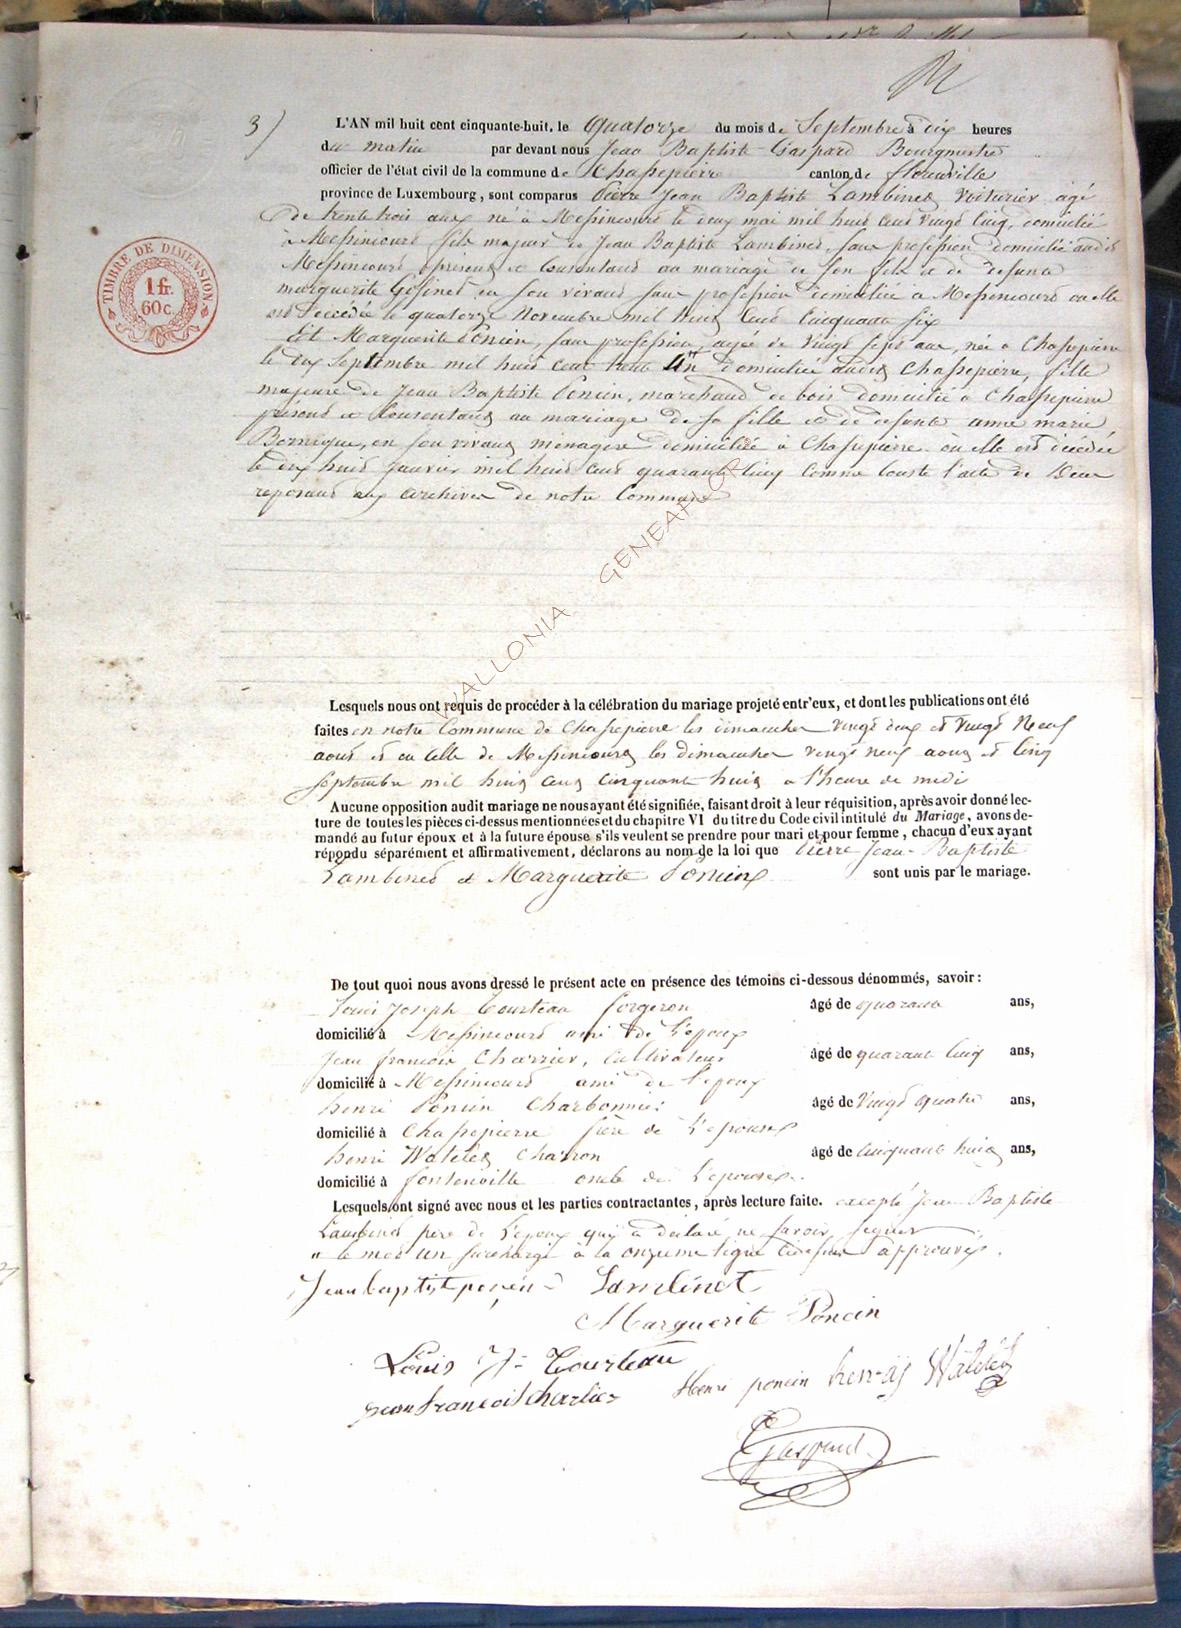 3)
L'AN mil huit cent cinquante-huit, le Quatorze du mois de Septembre à dix heures
du matin par devant nous Jean Baptiste Gaspard Bourgmestre
officier de l'état civil de la commune de Chassepierre canton de florenville
province de Luxembourg, sont comparus Pierre Jean Baptiste Lambinet voiturier agé
de trente trois ans né à Messincourt le deux mai mil huit cent vingt cinq, domicilié
à Messincourt fils majeur de Jean Baptiste Lambinet, sans profession domicilié audit
Messincourt à présent et consentant au mariage de son fils et de defunte
marguerite Gosinet en son vivant sans profession domiciliée à Messincourt ou elle
est décédée le quatorze Novembre mil huit cent cinquante six
Et Marguerite Poncin, sans profession, agée de vingt sept ans, née à Chassepierre
le dix Septembre mil huit cent trente un domiciliée audit Chassepierre, fille
majeure de Jean Baptiste Poncin, marchand de bois domicilié à Chassepierre
présent et consentant au mariage de sa fille et de defunte anne marie
en son vivant ménagère domiciliée à Chassepierre où elle est décédée
le dix huit janvier mil huit cent quarante cinq comme conste l'acte de Décès
reposant aux archives de notre Commune
TIMBRE DE DIMENSION
1 fr.
60 c.
WALLONIA GENEAFLOR
Lesquels nous ont requis de procéder à la célébration du mariage projeté entr'eux, et dont les publications ont été
faites en notre Commune de Chassepierre les dimanches vingt deux et vingt Neuf
aout et en celle de Messincourt les dimanches vingt neuf aout et cinq
septembre mil huit cent cinquante huit à l'heure de midi
Aucune opposition audit mariage ne nous ayant été signifiée, faisant droit à leur réquisition, après avoir donné lec-
ture de toutes les pièces ci-dessus mentionnées et du chapitre VI du titre du Code civil intitulé du Mariage, avons de-
mandé au futur époux et à la future épouse s'ils veulent se prendre pour mari et pour femme, chacun d'eux ayant
répondu séparément et affirmativement, déclarons au nom de la loi que Pierre Jean Baptiste
Lambinet et Marguerite Poncin sont unis par le mariage.
De tout quoi nous avons dressé le présent acte en présence des témoins ci-dessous dénommés, savoir:
Louis Joseph Tourteau forgeron âgé de quarante ans,
domicilié à Messincourt ami de l'epoux
Jean françois Charrier, cultivateur âgé de quarante cinq ans,
domicilié à Messincourt ami de l'epoux
henri Poncin Charbonnier âgé de vingt quatre ans,
domicilié à Chassepierre frère de l'epouse
henri Watelet Charron âgé de cinquante huit ans,
domicilié à fontenoille oncle de l'epouse.
Lesquels ont signé avec nous et les parties contractantes, après lecture faite. excepté Jean Baptiste
Lambinet père de l'epoux qui à déclaré ne savoir signer
" le mot un surchargé à la onzieme ligne ci dessus approuvés.
Jean baptist poncin Lambinet
Marguerite Poncin
Louis J= Tourteau
jean francois charlier Henri poncin henry Watelet
Gaspard